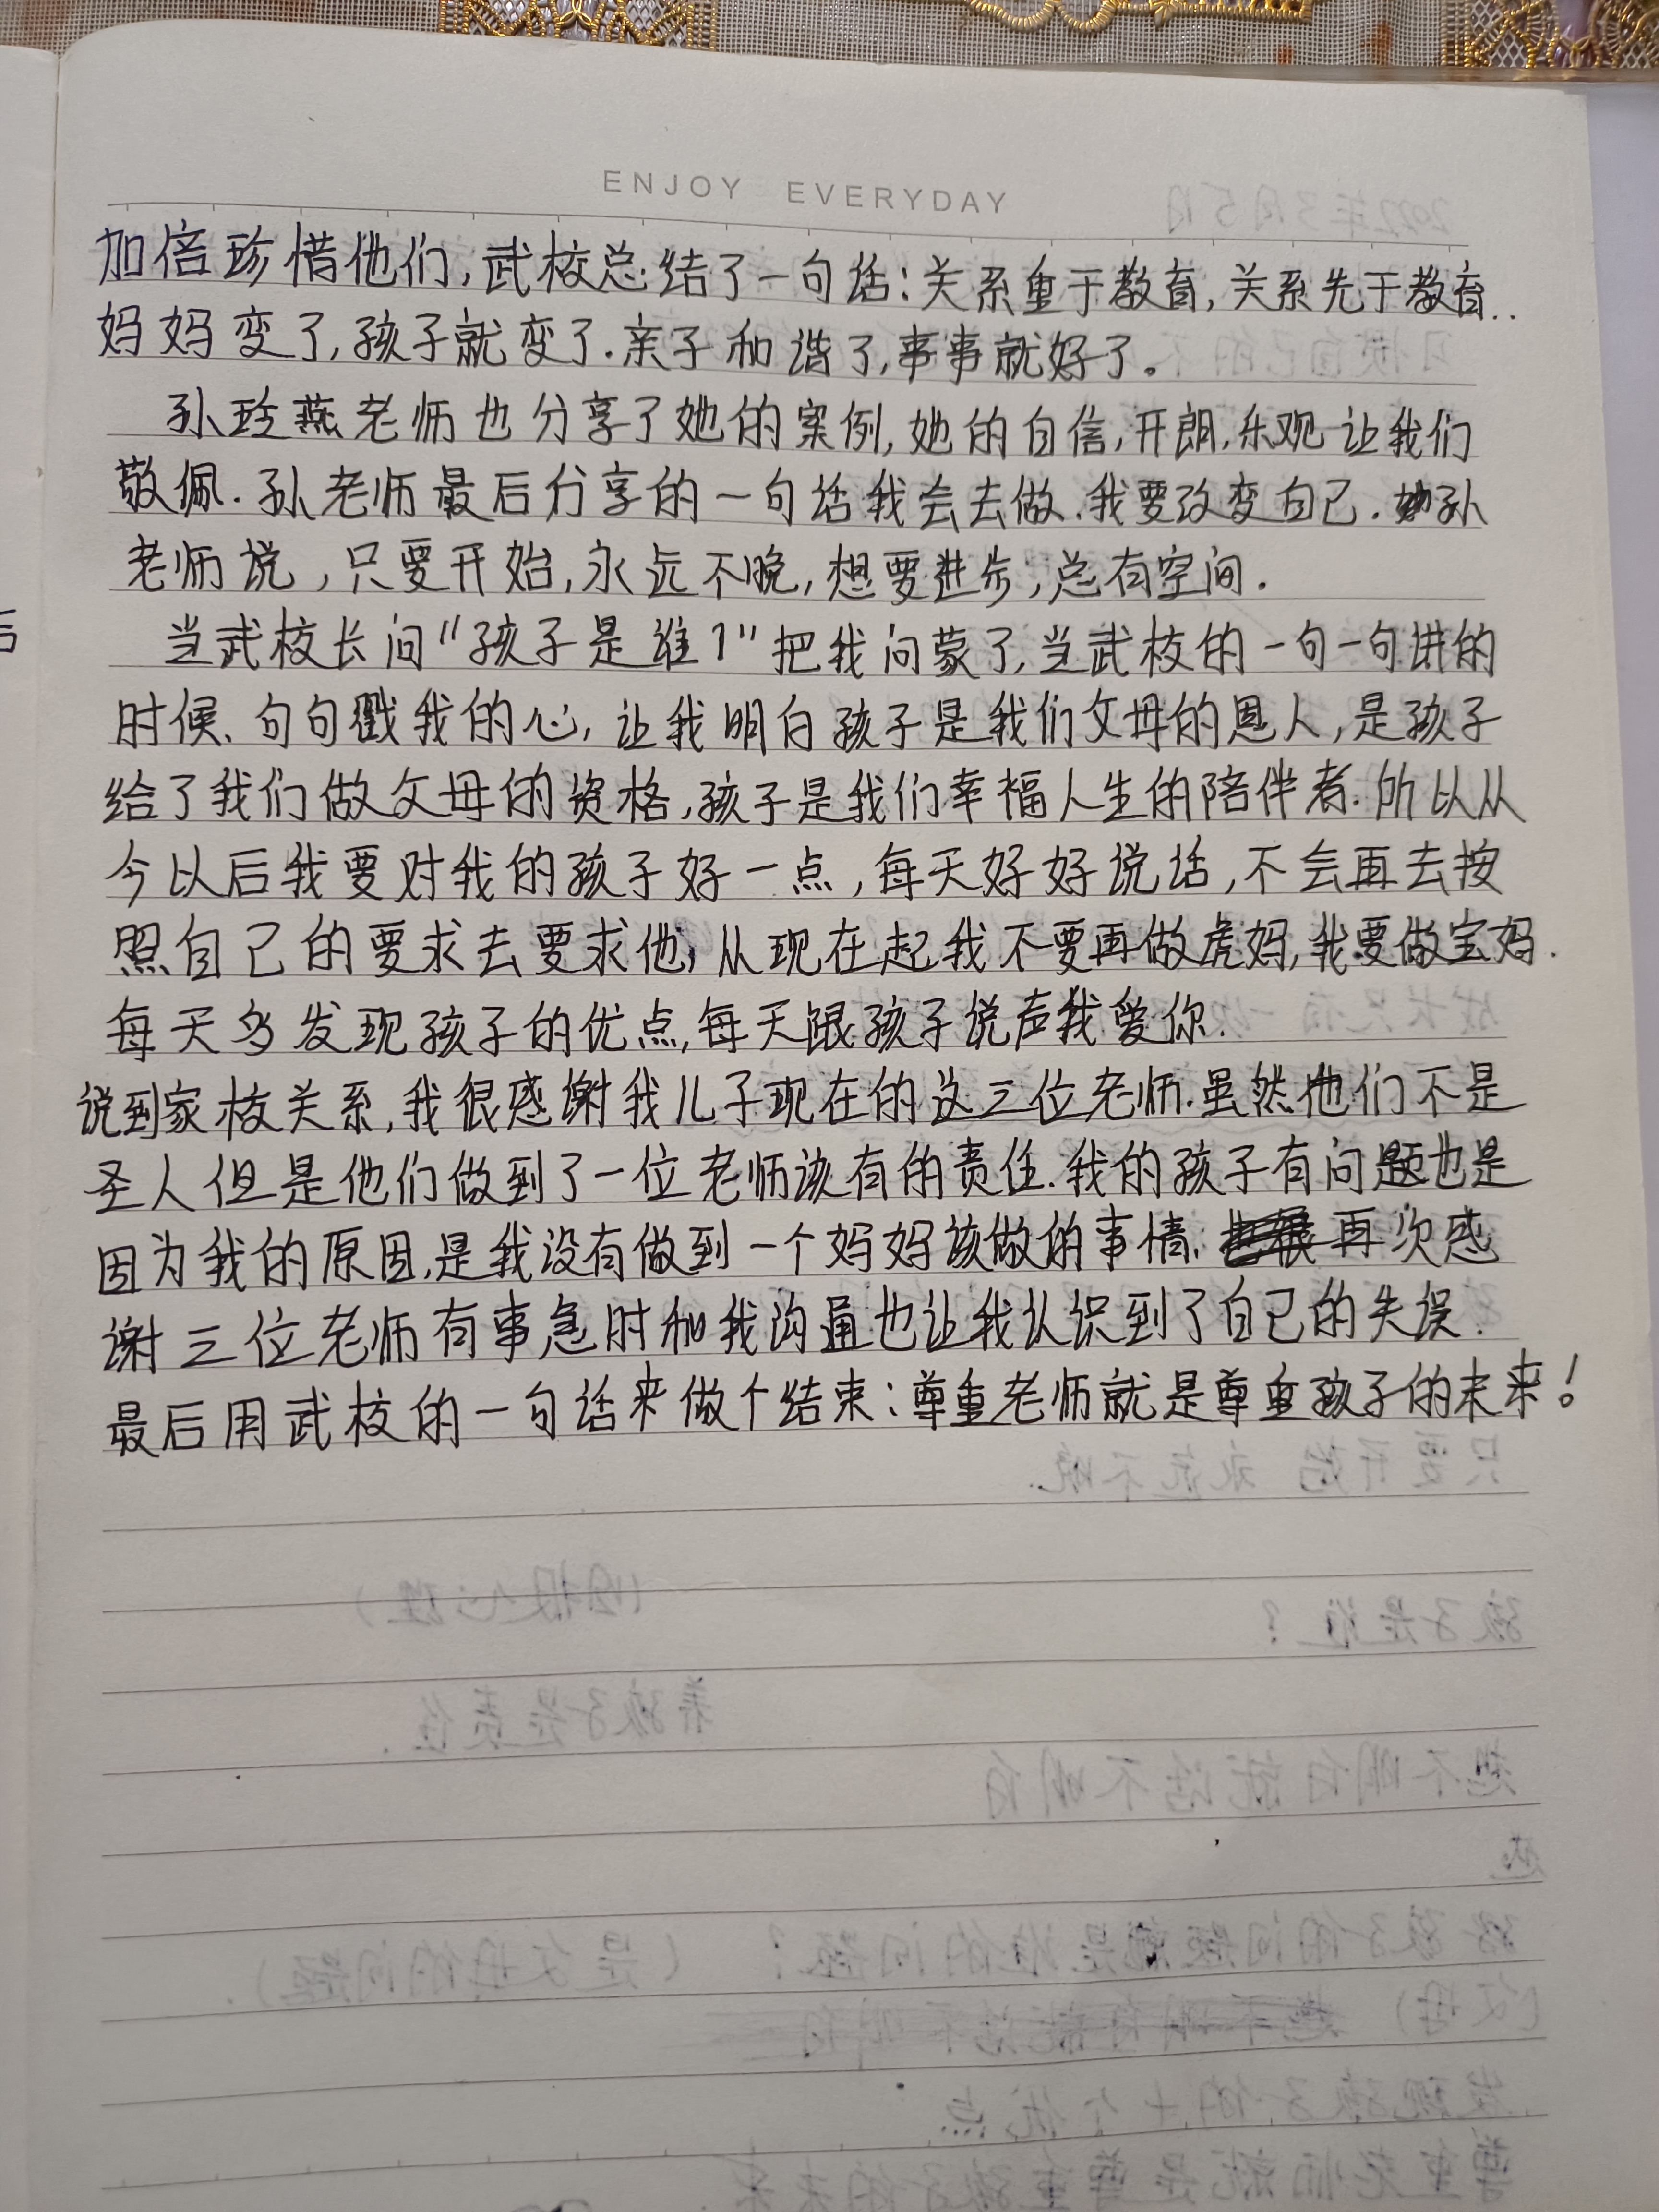 ENJOY EVERYDAY
加倍珍惜他们,武校总结了一句话:关系重于教育,关系先于教育..
妈妈变了,孩子就变了.亲子和谐了,事事就好了。
孙玲燕老师也分享了她的案例,她的自信,开朗,乐观让我们
敬佩.孙老师最后分享的一句话我会去做.我要改变自己.孙
老师说,只要开始,永远不晚,想要进步,总有空间.
当武校长问"孩子是谁?"把我问蒙了,当武校的一句一句讲的
时候、句句戳我的心,让我明白孩子是我们父母的恩人,是孩子
给了我们做父母的资格,孩子是我们幸福人生的陪伴者.所以从
今以后我要对我的孩子好一点,每天好好说话,不会再去按
照自己的要求去要求他,从现在起我不要再做虎妈,我要做宝妈.
每天多发现孩子的优点,每天跟孩子说声我爱你.
说到家校关系,我很感谢我儿子现在的这三位老师.虽然他们不是
圣人但是他们做到了一位老师该有的责任.我的孩子有问题也是
因为我的原因,是我没有做到一个妈妈该做的事情.再次感
谢三位老师有事急时和我沟通也让我认识到了自己的失误.
最后用武校的一句话来做个结束:尊重老师就是尊重孩子的未来!